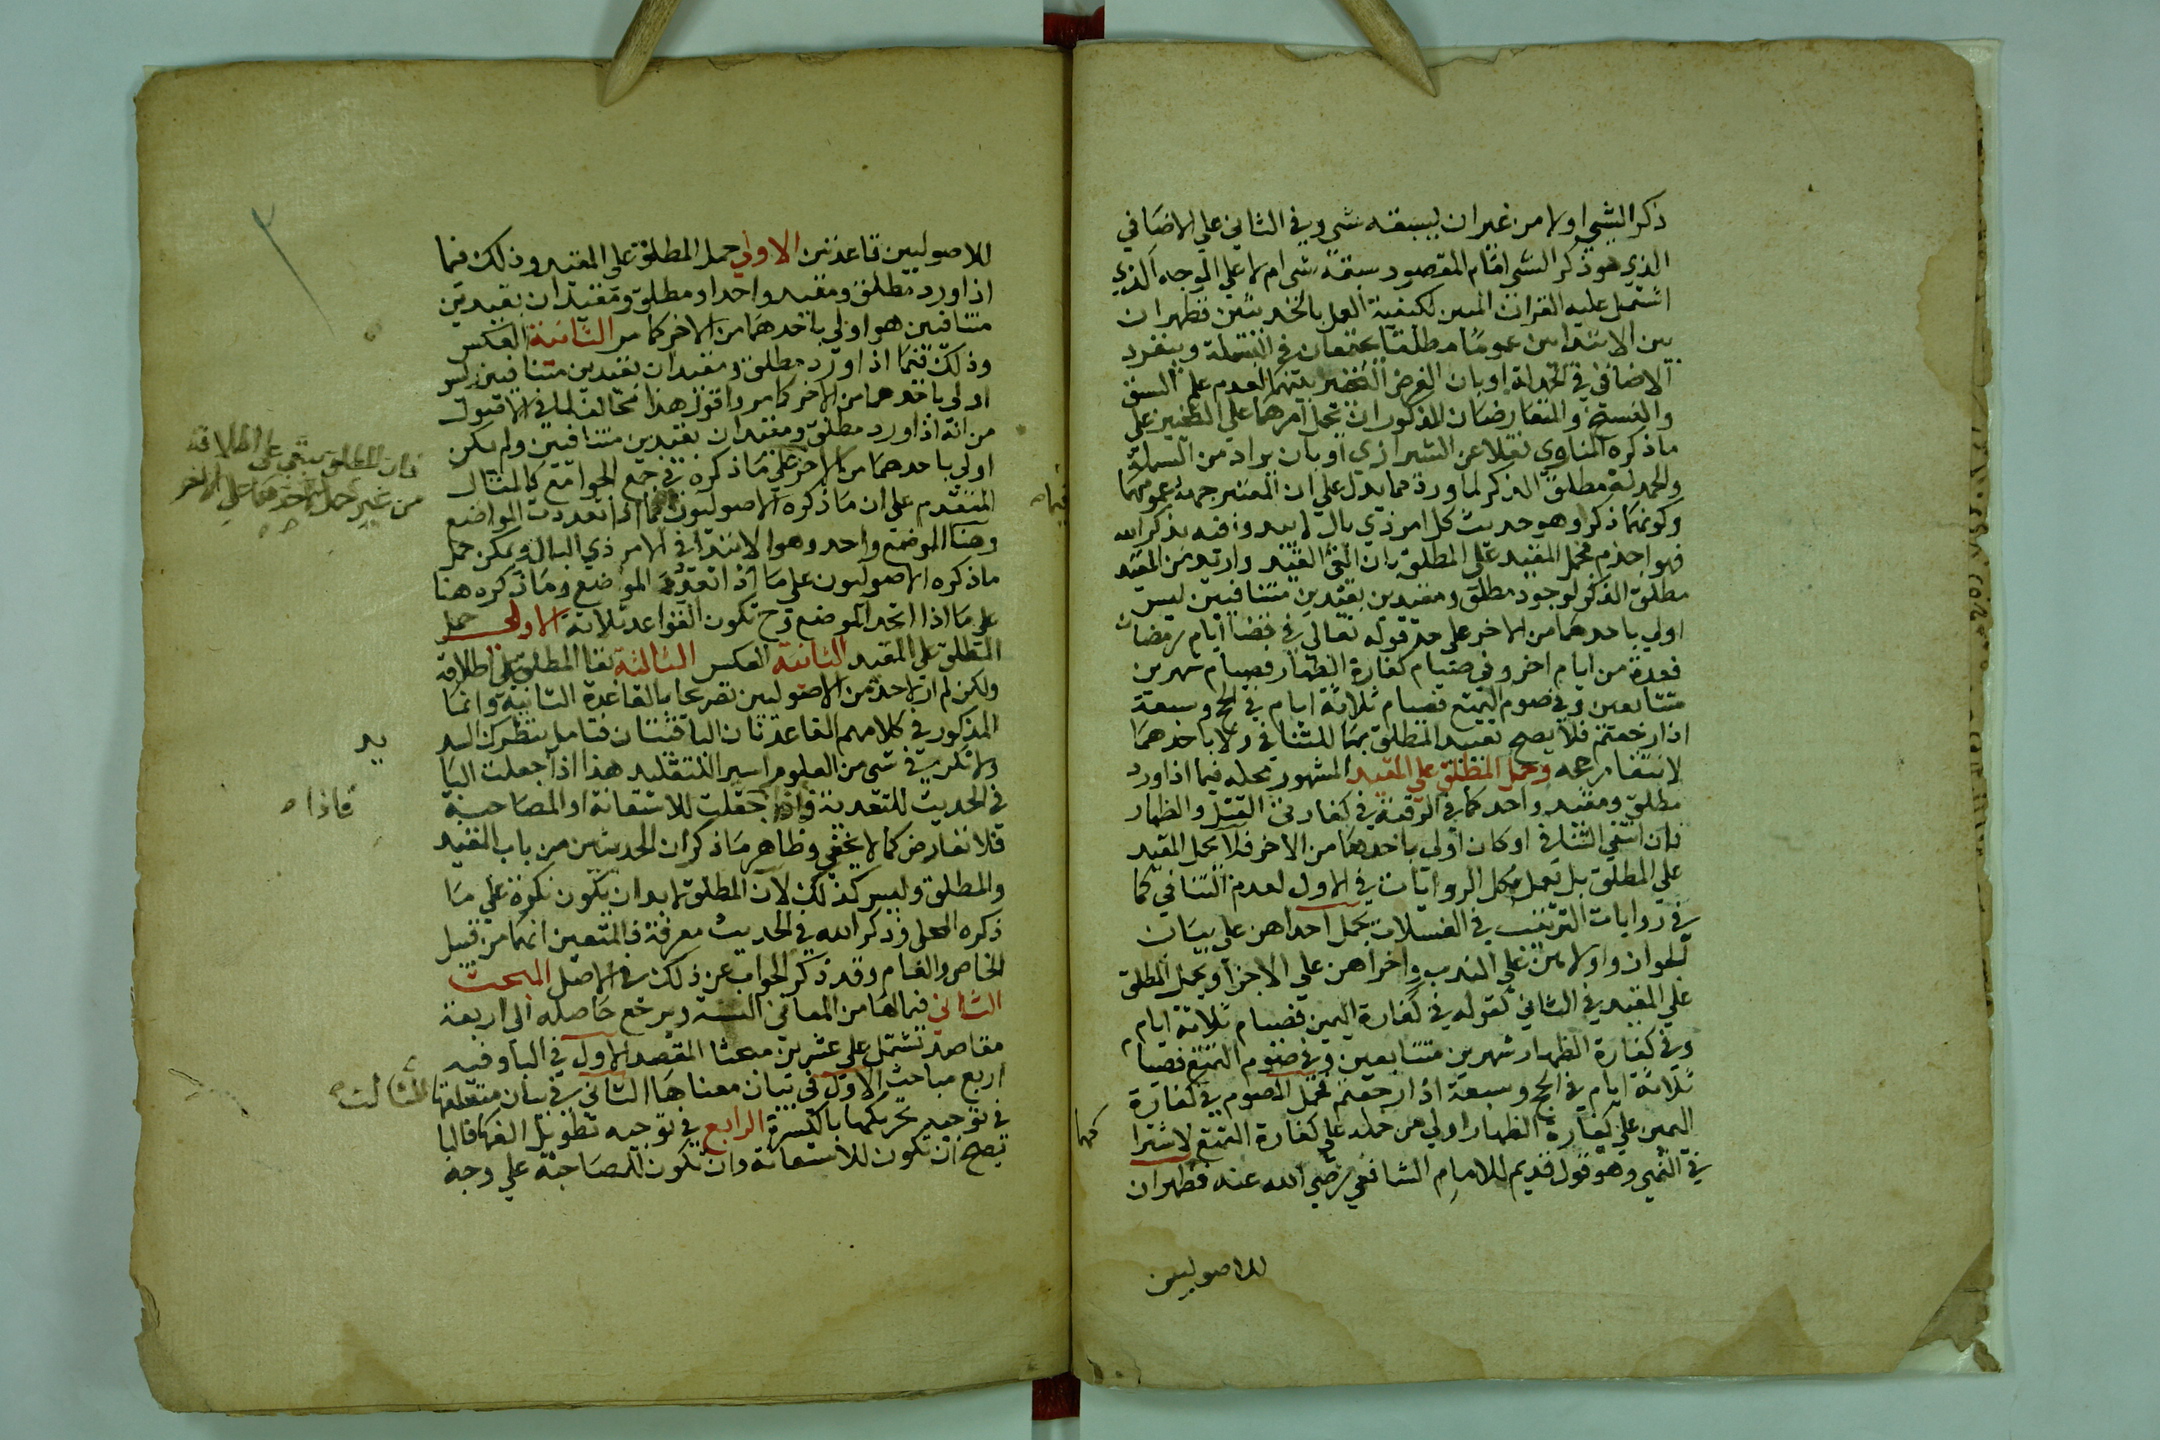 ذكر الشي اولا من غير ان يسبقه شي وفي الثاني علي الاضافي
الذي هو ذكر الشي امام المقصود سبقه شي ام لا علي الوجه الذي
اشتمل عليه القران المبين لكيفية العمل بالحديثين فظهر ان
بين الابتدا ين عموما مطلقا يجتمعان في البسملة وينفرد
الاضافي في الحمدلة او بان الغرض التخيير بينهما لعدم علم السبق
والنسخ والمتعارضان المذكوران تحمل امرهما علي التخيير علي
ما ذكره المناوي نقلا عن الشيرازي او بان يراد من البسملة
والحمدلة مطلق الذكر لما ورد مما يدل علي ان المعتبر جهة عمومهما
وكونهما ذكرا وهو حديث كل امر ذي بال لا يبدو افيه بذكر الله
فهو اجذم فحمل المقيد علي المطلق بان الغي القيد واريد من المقيد
مطلق الذكر لوجود مطلق ومقيدين بقيدين متنافيين ليس
اولي باحدهما من الاخر علي حد قوله تعالي في قضا ايام رمضان
فعدة من ايام اخر وفي صيام كفارة الظهار فصيام شهرين
متتابعين وفي صوم التمتع فصيام ثلاثة ايام في الحج وسبعة
اذا رجعتم فلا يصح تقييد المطلق بهما للتنافي ولا باحدهما
لانتفا مرجحه وحمل المطلق علي المقيد المشهور محله فيما اذا ورد
مطلق ومقيد واحد كما في الرقبة في كفارتي القتل والظهار
فان انتفي التنافي او كان اولي باحدهما من الاخر فلا يحمل المقيد
علي المطلق بل يعمل بكل الروايات في الاول لعدم التنافي كما
في روايات التتريب في الغسلات بحمل احداهن علي بيان
الجواز واولاهن علي الندب واخراهن علي الاجزا ويحمل المطلق
علي المقيد في الثاني كقوله في كفارة اليمين فصيام ثلاثة ايام
وفي كفارة الظهار شهرين متتابعين وفي صوم التمتع فصيام
ثلاثة ايام في الحج وسبعة اذا رجعتم فحمل الصوم في كفارة
اليمين علي كفارة الظهار اولي من حمله علي كفارة التمتع لاشتراكهما
في النهي وهو قول قديم للامام الشافعي رضي الله عنه فظهر ان
للاصوليين
للاصوليين قاعدتين الاولي حمل المطلق علي المقيد وذلك فيما
اذا ورد مطلق ومقيد واحد او مطلق ومقيدان بقيدين
متنافيين هو اولي باحدهما من الاخر كما مر الثانية العكس
وذلك فيما اذا ورد مطلق ومقيدان بقيدين متنافيين ليس
اولي باحدهما من الاخر كما مر واقول هذا مخالف لما في الاصول
من انه اذا ورد مطلق ومقيدان بقيدين متنافيين ولم يكن
اولي باحدهما من الاخر علي ما ذكره في جمع الجوامع كالمثال
فان المطلق يبقي علي اطلاقه
من غير حمل احدهما علي الاخر
المتقدم علي ان ما ذكره الاصوليون فيما اذا تعددت المواضع
وهنا الموضع واحد وهو الابتدا في الامر ذي البال ويمكن حمل
ما ذكره الاصوليون علي ما اذا تعدد المواضع وما ذكره هنا
علي ما اذا اتحد الموضع وح تكون القواعد ثلاثة الاولي حمل
المطلق علي المقيد الثانية العكس الثالثة بقا المطلق علي اطلاقه
ولكن لم ار لاحد من الاصوليين تصريحا بالقاعدة الثانية وانما
المذكور في كلامهم القاعدتان الباقيتان فتامل بنظرك السديد
ولا تكن في شي من العلوم اسير التقليد هذا اذا جعلت البا
في الحديث للتعدية فاذا جعلت للاستعانة او المصاحبة
فاذا
فلا تعارض كما لا يخفي وظاهر ما ذكر ان الحديثين من باب المقيد
والمطلق وليس كذلك لان المطلق لا بد ان يكون نكرة علي ما
ذكره المحلي وذكر الله في الحديث معرفة فالمتعين انهما من قبيل
الخاص والعام وقد ذكر الجواب عن ذلك في الاصل المبحث
الثاني فيما لها من المعاني ويرجع حاصله الي اربعة
مقاصد تشتمل علي عشرين مبحثا المقصد الاول في البا وفيه
اربع مباحث الاول في بيان معناها الثاني في بيان متعلقها الثالث
في توجيه تحريكها بالكسرة الرابع في توجيه تطويل الفها فالبا
يصح ان تكون للاستعانة وان تكون للمصاحبة علي وجه